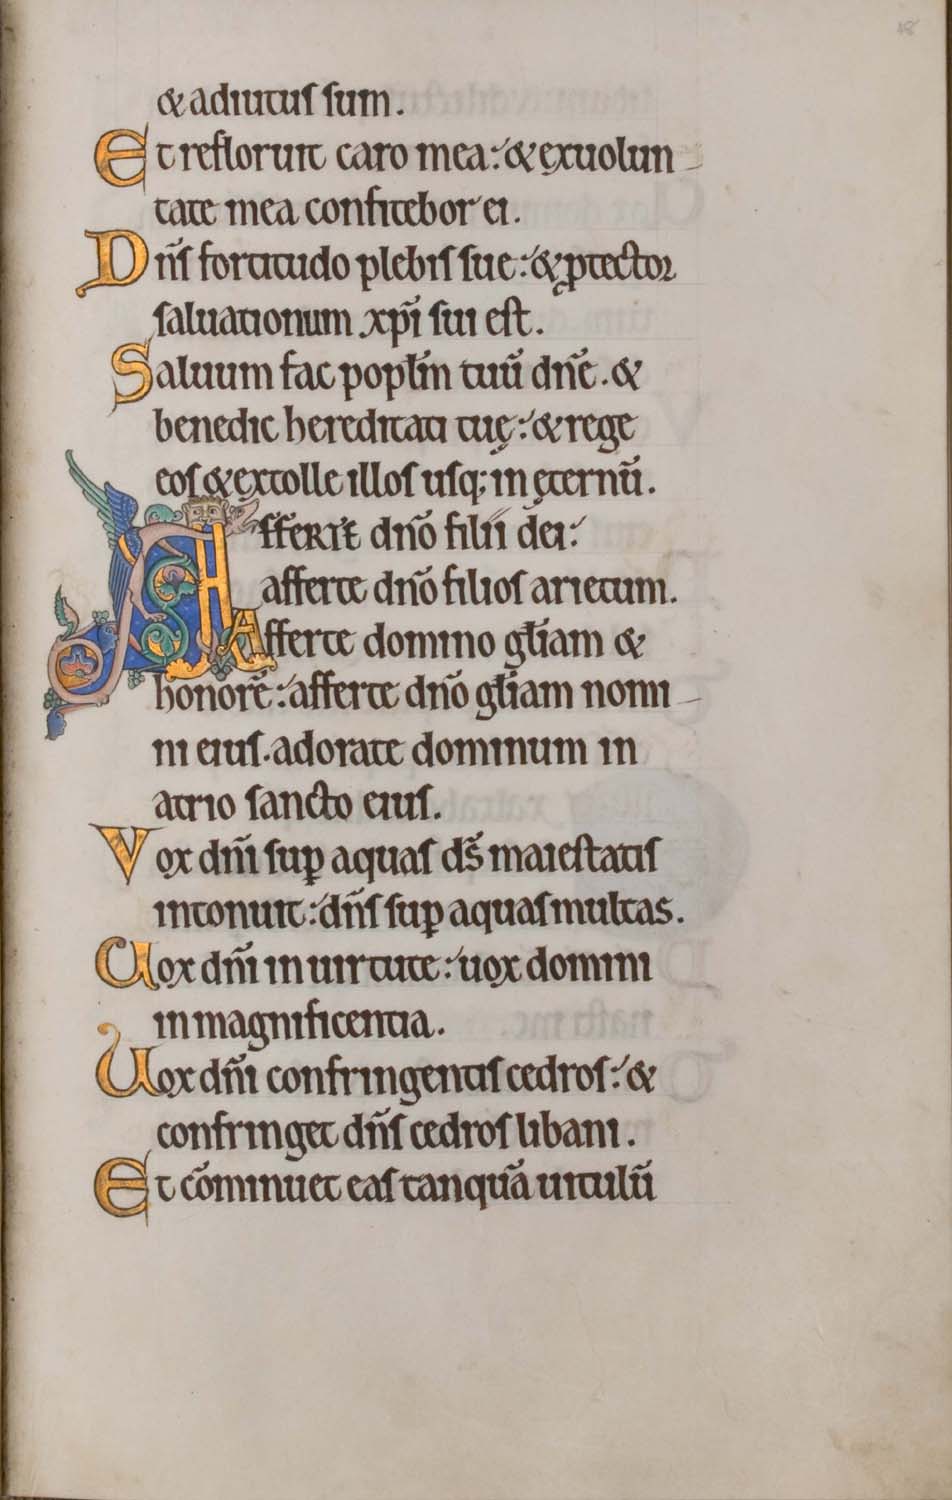 48
& adiutus sum.
Et refloruit caro mea: & exuolun-
tate mea confitebor ei.
Dn̄s fortitudo plebis sue: & ꝓtector
saluationum xp̄i sui est.
Saluum fac popl̄m tuū dn̄e. &
benedic hereditati tuę: & rege
eos & extolle illos usq; in ęternū.
Afferte dn̄o filii dei:
afferte dn̄o filios arietum.
Afferte domino gl̄iam &
honorē: afferte dn̄o gl̄iam nomi-
ni eius. adorate dominum in
atrio sancto eius.
Vox dn̄i suꝑ aquas ds̄ maiestatis
intonuit: dn̄s suꝑ aquas multas.
Uox dn̄i in uirtute: uox domini
in magnificentia.
Uox dn̄i confringentis cedros: &
confringet dn̄s cedros libani.
Et cōminuet eas tanquā uitulū